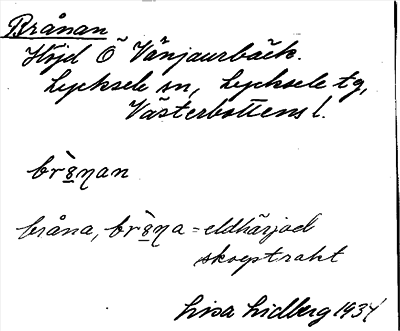 Brånan
Höjd Ö Vänjaurbäck.
Lycksele sn, Lycksele tg,
Västerbottens l.
brò̱nan
bråna, brò̱na = eldhärjad
skogstrakt
Lisa Lidberg 1934